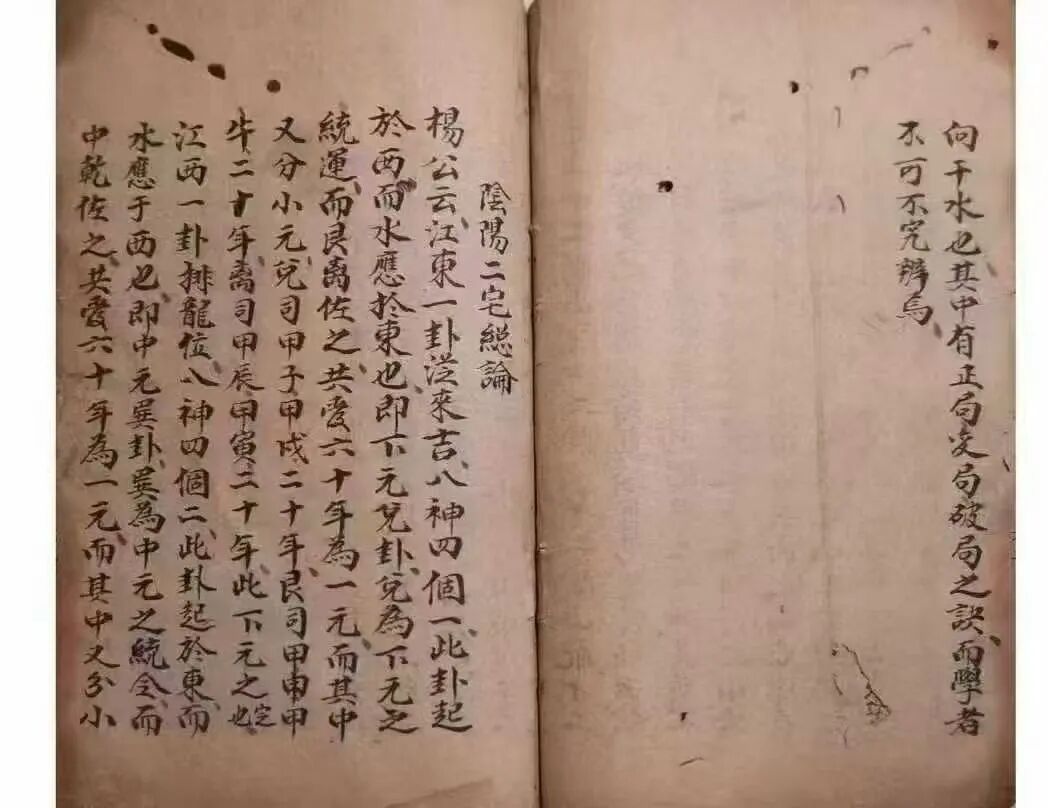 向干水也其中有正局变局破局之訣、而學者
不可不究辨焉、
陰陽二宅総論
楊公云、江東一卦従來吉、八神四個一、此卦起
於西、而水應於東也、即下元兌卦、兌為下元之
統運、而艮离佐之、共愛六十年為一元、而其中
又分小元、兌司甲子甲戌二十年、艮司甲申甲
午二十年、离司甲辰甲寅二十年、此下元之定也
江西一卦排龍位、八神四個二、此卦起於東、而
水應于西也、即中元巽卦、巽為中元之統令、而
中乾佐之、共愛六十年為一元、而其中又分小